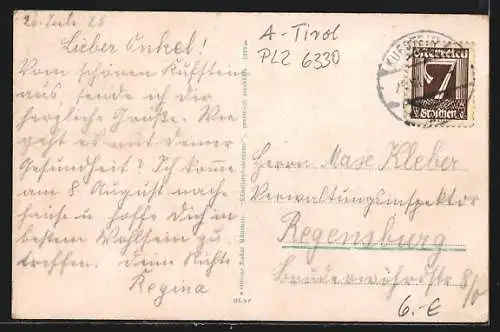 26. Juli 26
Lieber Onkel!
Vom schönen Kufstein
aus, sende ich dir
herzliche Grüße. Wie
geht es mit deiner
Gesundheit? Ich komme
am 8 August nach
hause u. hoffe Dich im
besten Wohlsein zu
treffen. Deine Nichte
Regina
A-Tirol
PLZ 6330
KUFSTEIN
Österreich
7
Groschen
Herrn Max Kleber
Verwaltungsinspektor
Regensburg
Bruderwöhrdstr 8/0
6.-€